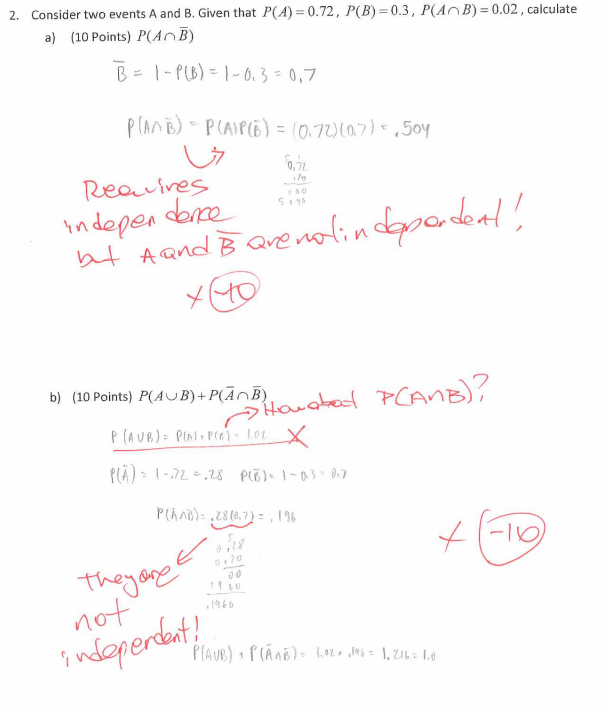 2. Consider two events A and B. Given that P(A) = 0.72, P(B) = 0.3, P(A∩B) = 0.02, calculate
a) (10 Points) P(A∩B̅)
B̅ = 1-P(B) = 1-0.3 = 0,7
P(A∩B̅) = P(A)P(B̅) = (0.72)(0.7) = .504
Requires
independence
but A and B̅ are not independent!
× -10
b) (10 Points) P(A∪B)+P(A̅∩B̅)
How about P(A∩B)?
P(A∪B) = P(A)+P(B) = 1.02 X
P(A̅) = 1-.72 = .28 P(B̅) = 1-0.3 = 0.7
P(A̅∩B̅) = .28(0.7) = .196
× -10
0.28
0.70
00
.1960
they are
not
independent!
P(A∪B) + P(A̅∩B̅) = 1.02 + .196 = 1,216 = 1.0